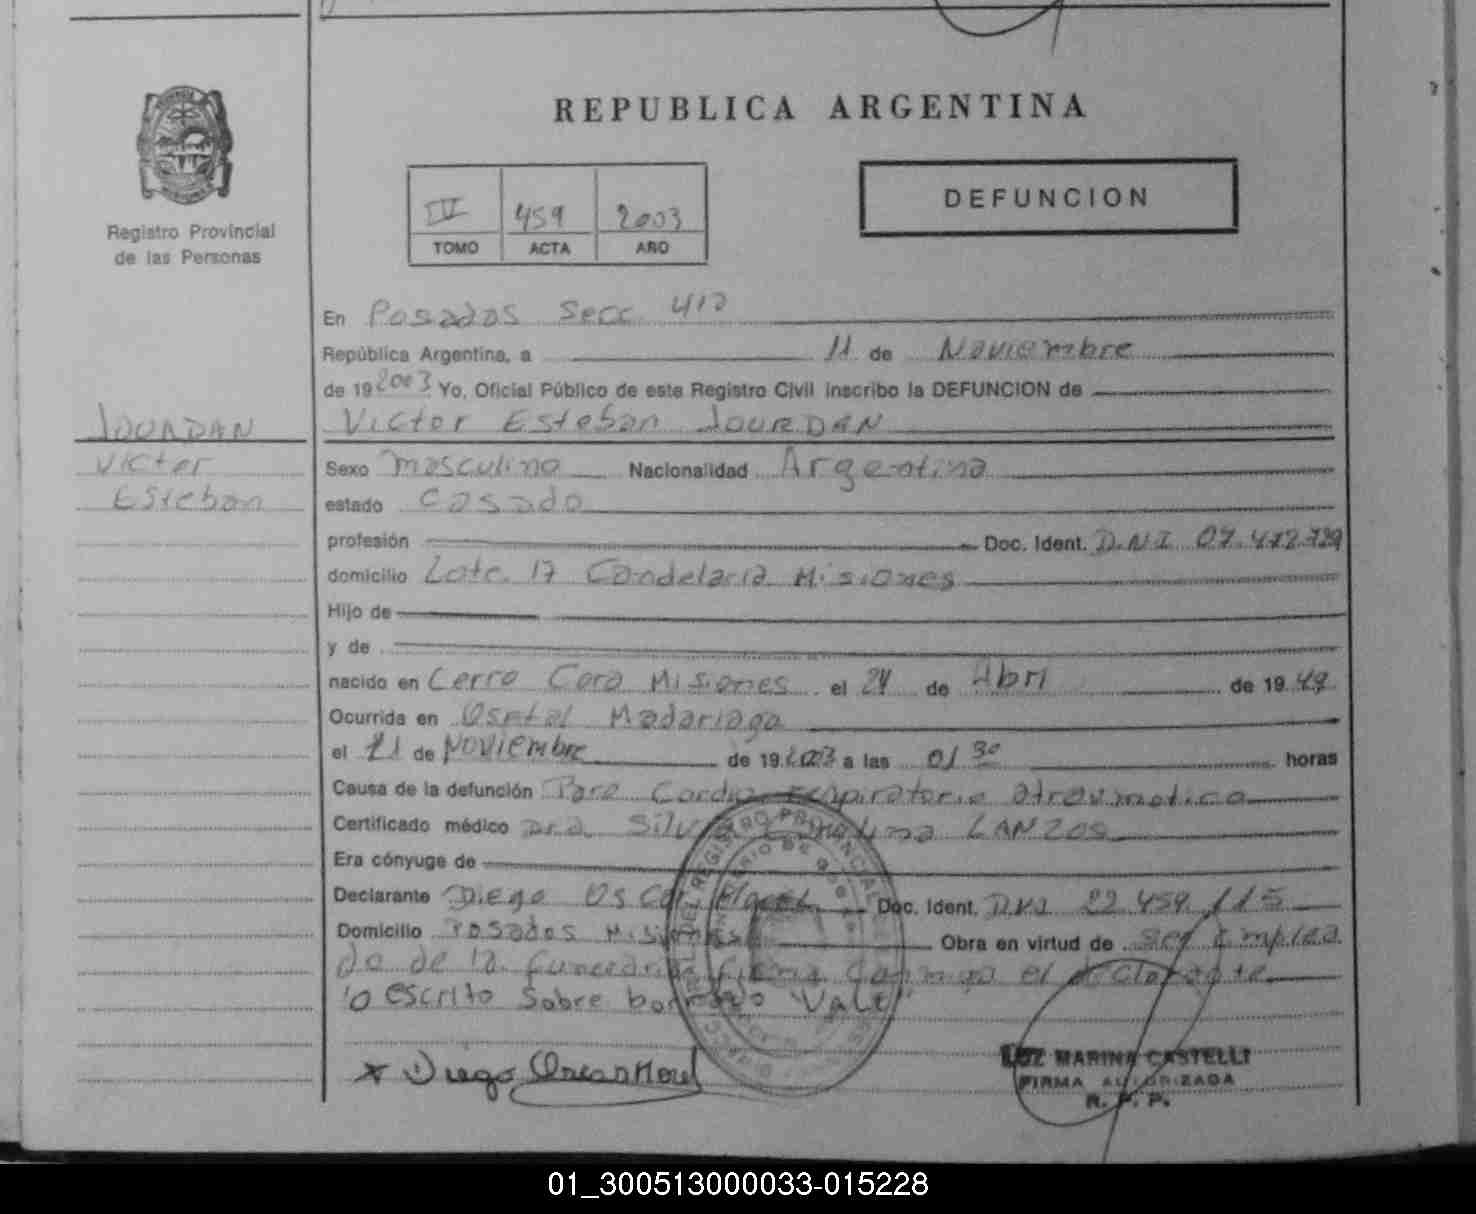 REPUBLICA ARGENTINA
DEFUNCION
IV 459 2003
TOMO ACTA AÑO
Registro Provincial
de las Personas
En Posadas Secc. 412
República Argentina, a 11 de Noviembre
de 19 2003 Yo, Oficial Público de este Registro Civil inscribo la DEFUNCION de
Victor Esteban JOURDAN
JOURDAN
Victor
Esteban
Sexo masculino Nacionalidad Argentina
estado Casado
profesión Doc. Ident. D.N.I. 07.472.729
domicilio Lote. 17 Candelaria Misiones
Hijo de
y de
nacido en Cerro Cora Misiones el 24 de Abril de 19 49
Ocurrida en Osptal Madariaga
el 11 de Noviembre de 19 2003 a las 01 30 horas
Causa de la defunción Paro Cardio respiratorio atraumatico
Certificado médico Dra. LANZOS
Era cónyuge de
Declarante Diego Oscar Doc. Ident. DNI 22.459.115
Domicilio Posadas Misiones Obra en virtud de ser emplea
do de la funeraria firma conmigo el declarante
escrito sobre borrado Vale
Diego Oscar Morel
LUZ MARINA CASTELLI
FIRMA AUTORIZADA
R. P. P.
REGISTRO PROVINCIAL
01_300513000033-015228